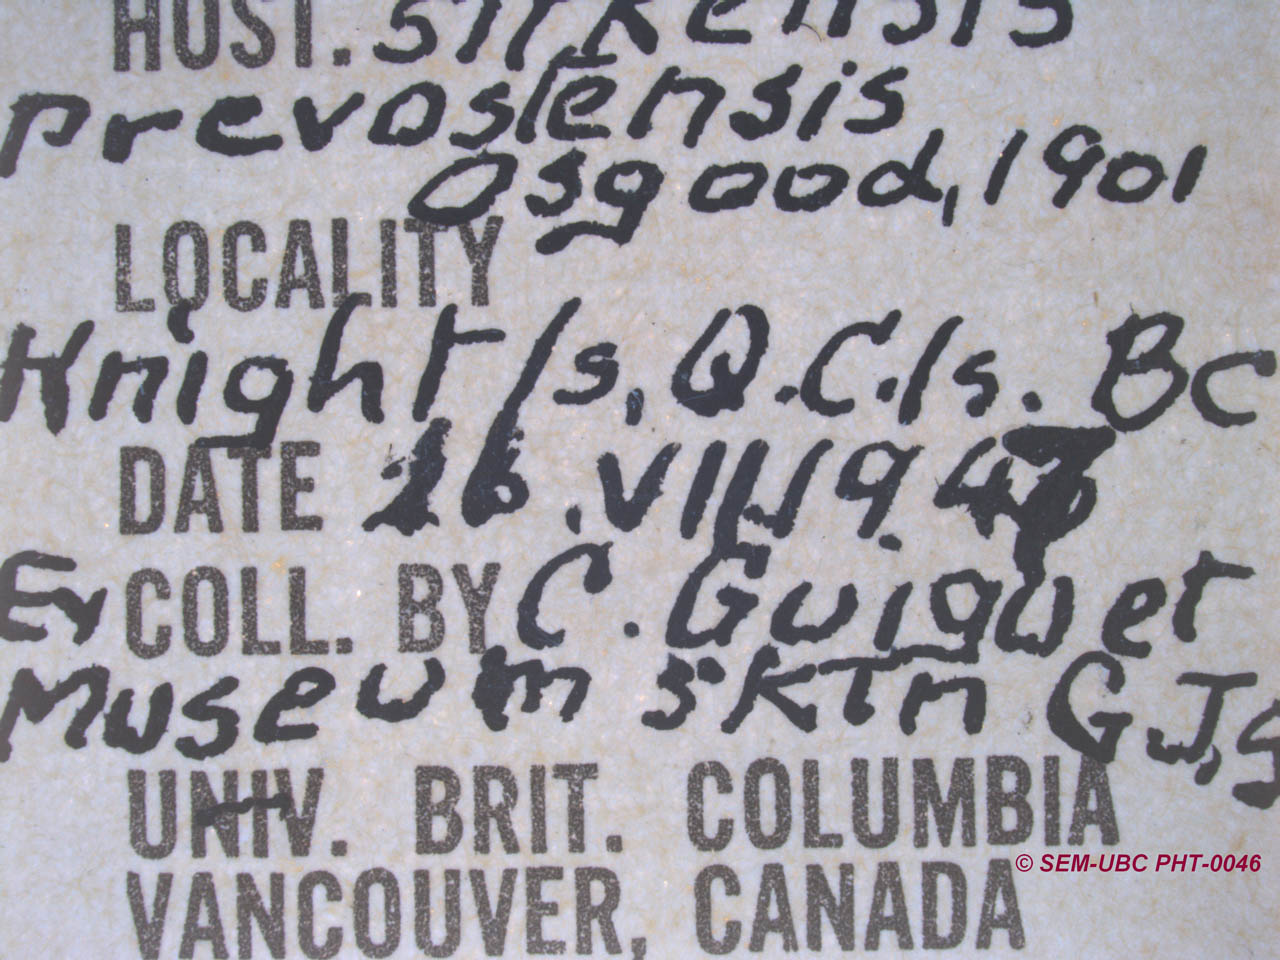 HOST. sitkensis
prevostensis
Osgood, 1901
LOCALITY
Knight Is, Q.C.Is. BC
DATE 26.VII.1947
Ex COLL. BY C. Guiguet
Museum skin G.J.S
UNIV. BRIT. COLUMBIA
© SEM-UBC PHT-0046
VANCOUVER, CANADA